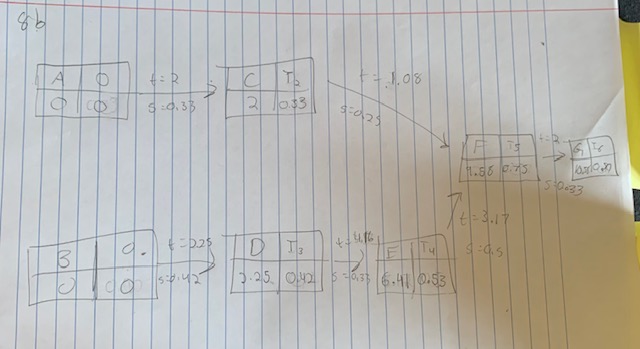 8b
A 0
0 0
t=2
s=0.33
C T2
2 0.33
t=1.08
s=0.25
F T5
9.58 0.75
t=2
s=0.33
G T6
B 0
0 0
t=2.25
s=0.42
D T3
2.25 0.42
t=4.16
s=0.33
E T4
6.41 0.53
t=3.17
s=0.5